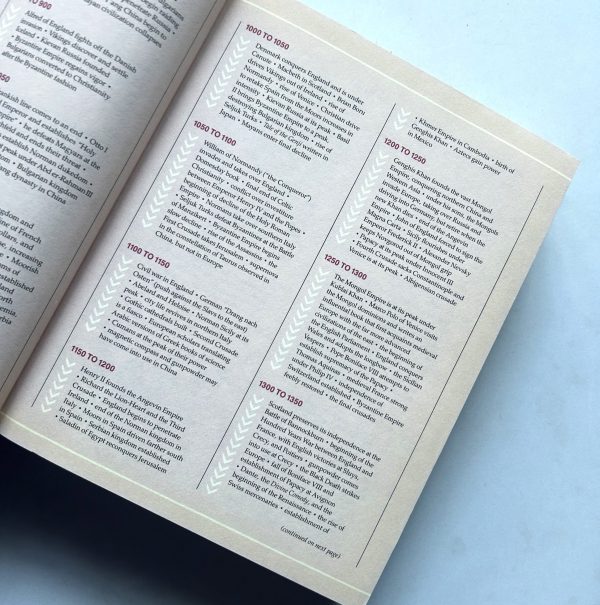 TO 900
Alfred of England fights off the Danish
• Vikings discover and settle
Iceland • Kievan Russia founded
• Byzantine Empire regains vigor •
Bulgarians converted to Christianity
after the Byzantine fashion
ang China begin to
ayan civilization collapses
line comes to an end • Otto I
Emperor and establishes "Holy
Empire" • he defeats Magyars at the
peak under Abd er-Rahman III
• Bulgarian kingdom
ng dynasty in China
1000 TO 1050
Denmark conquers England and is under
Canute • Macbeth in Scotland • Brian Boru
drives Vikings out of Ireland • rise of
Normandy • rise of Venice • Christian drive
to retake Spain from the Moors increases in
intensity • Kievan Russia at its peak • Basil
II brings Byzantine Empire to its peak,
destroying Bulgarian kingdom • rise of
Seljuk Turks • Tale of the Genji written in
Japan • Mayans enter final decline
1050 TO 1100
William of Normandy ("the Conqueror")
invades and takes over England •
Domesday book • final end of Celtic
Christianity • conflict over investiture
between Emperor Henry IV and the Popes •
beginning of decline of the Holy Roman
Empire • Normans take over southern Italy
• Seljuk Turks defeat Byzantines at the
battle of Manzikert; Byzantine Empire begins
slow decline • rise of the Assassins • the
First Crusade takes Jerusalem • supernova
in the constellation of Taurus observed in
China, but not in Europe
1100 TO 1150
Civil war in England • German "Drang nach
Osten" (push against the Slavs to the east)
• Abelard and Heloise • Norman Sicily at its
peak • city life revives in northern Italy •
Gothic cathedrals built • Second Crusade
a fiasco • European scholars translating
Arabic versions of Greek books of science
• Cumans at the peak of their power •
magnetic compass and gunpowder may
have come into use in China
1150 TO 1200
Henry II founds the Angevin Empire
• Richard the Lion-Heart and the Third
Crusade • England begins to penetrate
Ireland • end of the Norman kingdom in
Italy • Moors in Spain driven farther south
in Spain • Serbian kingdom established
• Saladin of Egypt reconquers Jerusalem
• Khmer Empire in Cambodia • birth of
Genghis Khan • Aztecs gain power
in Mexico
1200 TO 1250
Genghis Khan founds the vast Mongol
Empire, conquering northern China and
Western Asia • under his sons, the Mongols
invade Europe, taking over Russia and
driving into Germany, but leave when the
new Khan dies • end of the Angevin
Empire • John of England forced to sign the
Magna Carta • Sicily flourishes under
Emperor Frederick II • Alexander Nevsky
keeps Novgorod out of Mongol grip
• Papacy at its peak under Innocent III
• Fourth Crusade sacks Constantinople and
Venice is at its peak • Albigensian crusade
1250 TO 1300
The Mongol Empire is at its peak under
Kublai Khan • Marco Polo of Venice visits
the Mongol dominions and writes an
influential book that acquaints medieval
Europe with the far more advanced
civilizations of the east • the beginning of
the English Parliament • England conquers
Wales and fights Scotland • the Sicilian
Vespers • Pope Boniface VIII attempts to
establish supremacy of the Papacy •
Thomas Aquinas • medieval France strong
under Philip IV • independence of
Switzerland established • Byzantine Empire
feebly restored • the final crusades
1300 TO 1350
Scotland preserves its independence at the
Battle of Bannockburn • beginning of the
Hundred Years War between England and
France, with English victories at Sluys,
Crecy, and Poitiers • gunpowder comes
into use at Crecy • the Black Death strikes
Europe • fall of Boniface VIII and
establishment of Papacy at Avignon
• Dante, the Divine Comedy, and the
beginning of the Renaissance • the rise of
Swiss mercenaries • establishment of
(continued on next page)